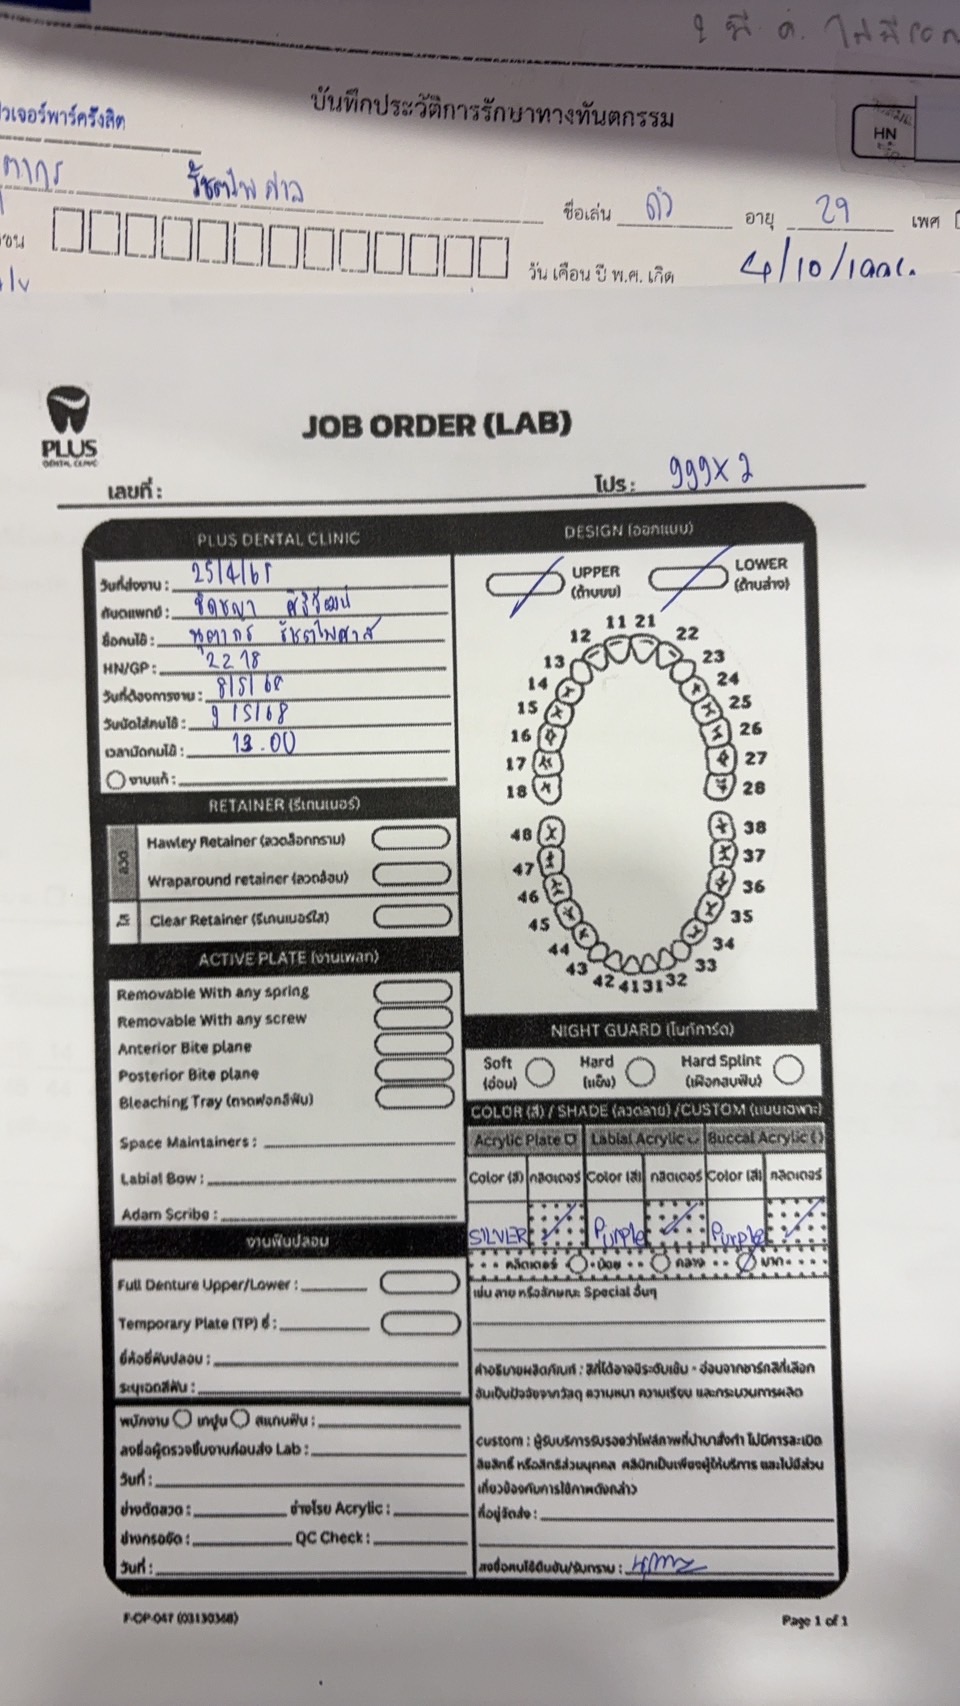 บันทึกประวัติการรักษาทางทันตกรรม
HN
รัชตไพศาล
ชื่อเล่น
อายุ 29 เพศ
วัน เดือน ปี พ.ศ. เกิด 4/10/
PLUS
DENTAL CLINIC
JOB ORDER (LAB)
เลขที่ :
โปร : 999x2
PLUS DENTAL CLINIC
วันที่ส่งงาน : 25/4/68
ทันตแพทย์ :
ชื่อคนไข้ : รัชตไพศาล
HN/GP : 2278
วันที่ต้องการงาน : 8/5/68
วันนัดใส่คนไข้ : 9/5/68
เวลานัดคนไข้ : 13.00
งานแก้ :
RETAINER (รีเทนเนอร์)
ลวด
Hawley Retainer (ลวดล็อกกราม)
Wraparound retainer (ลวดอ้อม)
ใส
Clear Retainer (รีเทนเนอร์ใส)
ACTIVE PLATE (งานเพลท)
Removable With any spring
Removable With any screw
Anterior Bite plane
Posterior Bite plane
Bleaching Tray (ถาดฟอกสีฟัน)
Space Maintainers :
Labial Bow :
Adam Scribe :
งานฟันปลอม
Full Denture Upper/Lower :
Temporary Plate (TP) ซี่ :
ยี่ห้อซี่ฟันปลอม :
ระบุเฉดสีฟัน :
พนักงาน เทปูน สแกนฟัน :
ลงชื่อผู้ตรวจชิ้นงานก่อนส่ง Lab :
วันที่ :
ช่างดัดลวด : ช่างโรย Acrylic :
ช่างกรอขัด : QC Check :
วันที่ :
DESIGN (ออกแบบ)
UPPER (ด้านบน)
LOWER (ด้านล่าง)
11 21
12 22
13 23
14 24
15 25
16 26
17 27
18 28
48 38
47 37
46 36
45 35
44 34
43 33
42 41 31 32
NIGHT GUARD (ไนท์การ์ด)
Soft (อ่อน)
Hard (แข็ง)
Hard Splint (เฝือกสบฟัน)
COLOR (สี) / SHADE (ลวดลาย) /CUSTOM (แบบเฉพาะ)
Acrylic Plate Labial Acrylic Buccal Acrylic
Color (สี) กลิตเตอร์ Color (สี) กลิตเตอร์ Color (สี) กลิตเตอร์
SILVER Purple Purple
กลิตเตอร์ น้อย กลาง มาก
เช่น ลาย หรือลักษณะ Special อื่นๆ
คำอธิบายผลิตภัณฑ์ : สีที่ได้อาจมีระดับเข้ม - อ่อนจากชาร์ทสีที่เลือก
อันเป็นปัจจัยจากวัสดุ ความหนา ความเรียบ และกระบวนการผลิต
custom : ผู้รับบริการรับรองว่าไฟล์ภาพที่นำมาสั่งทำ ไม่มีการละเมิด
ลิขสิทธิ์ หรือสิทธิส่วนบุคคล คลินิกเป็นเพียงผู้ให้บริการ และไม่มีส่วน
เกี่ยวข้องกับการใช้ภาพดังกล่าว
ที่อยู่จัดส่ง :
ลงชื่อคนไข้ยืนยัน/รับทราบ :
F-OP-047 (03130368)
Page 1 of 1